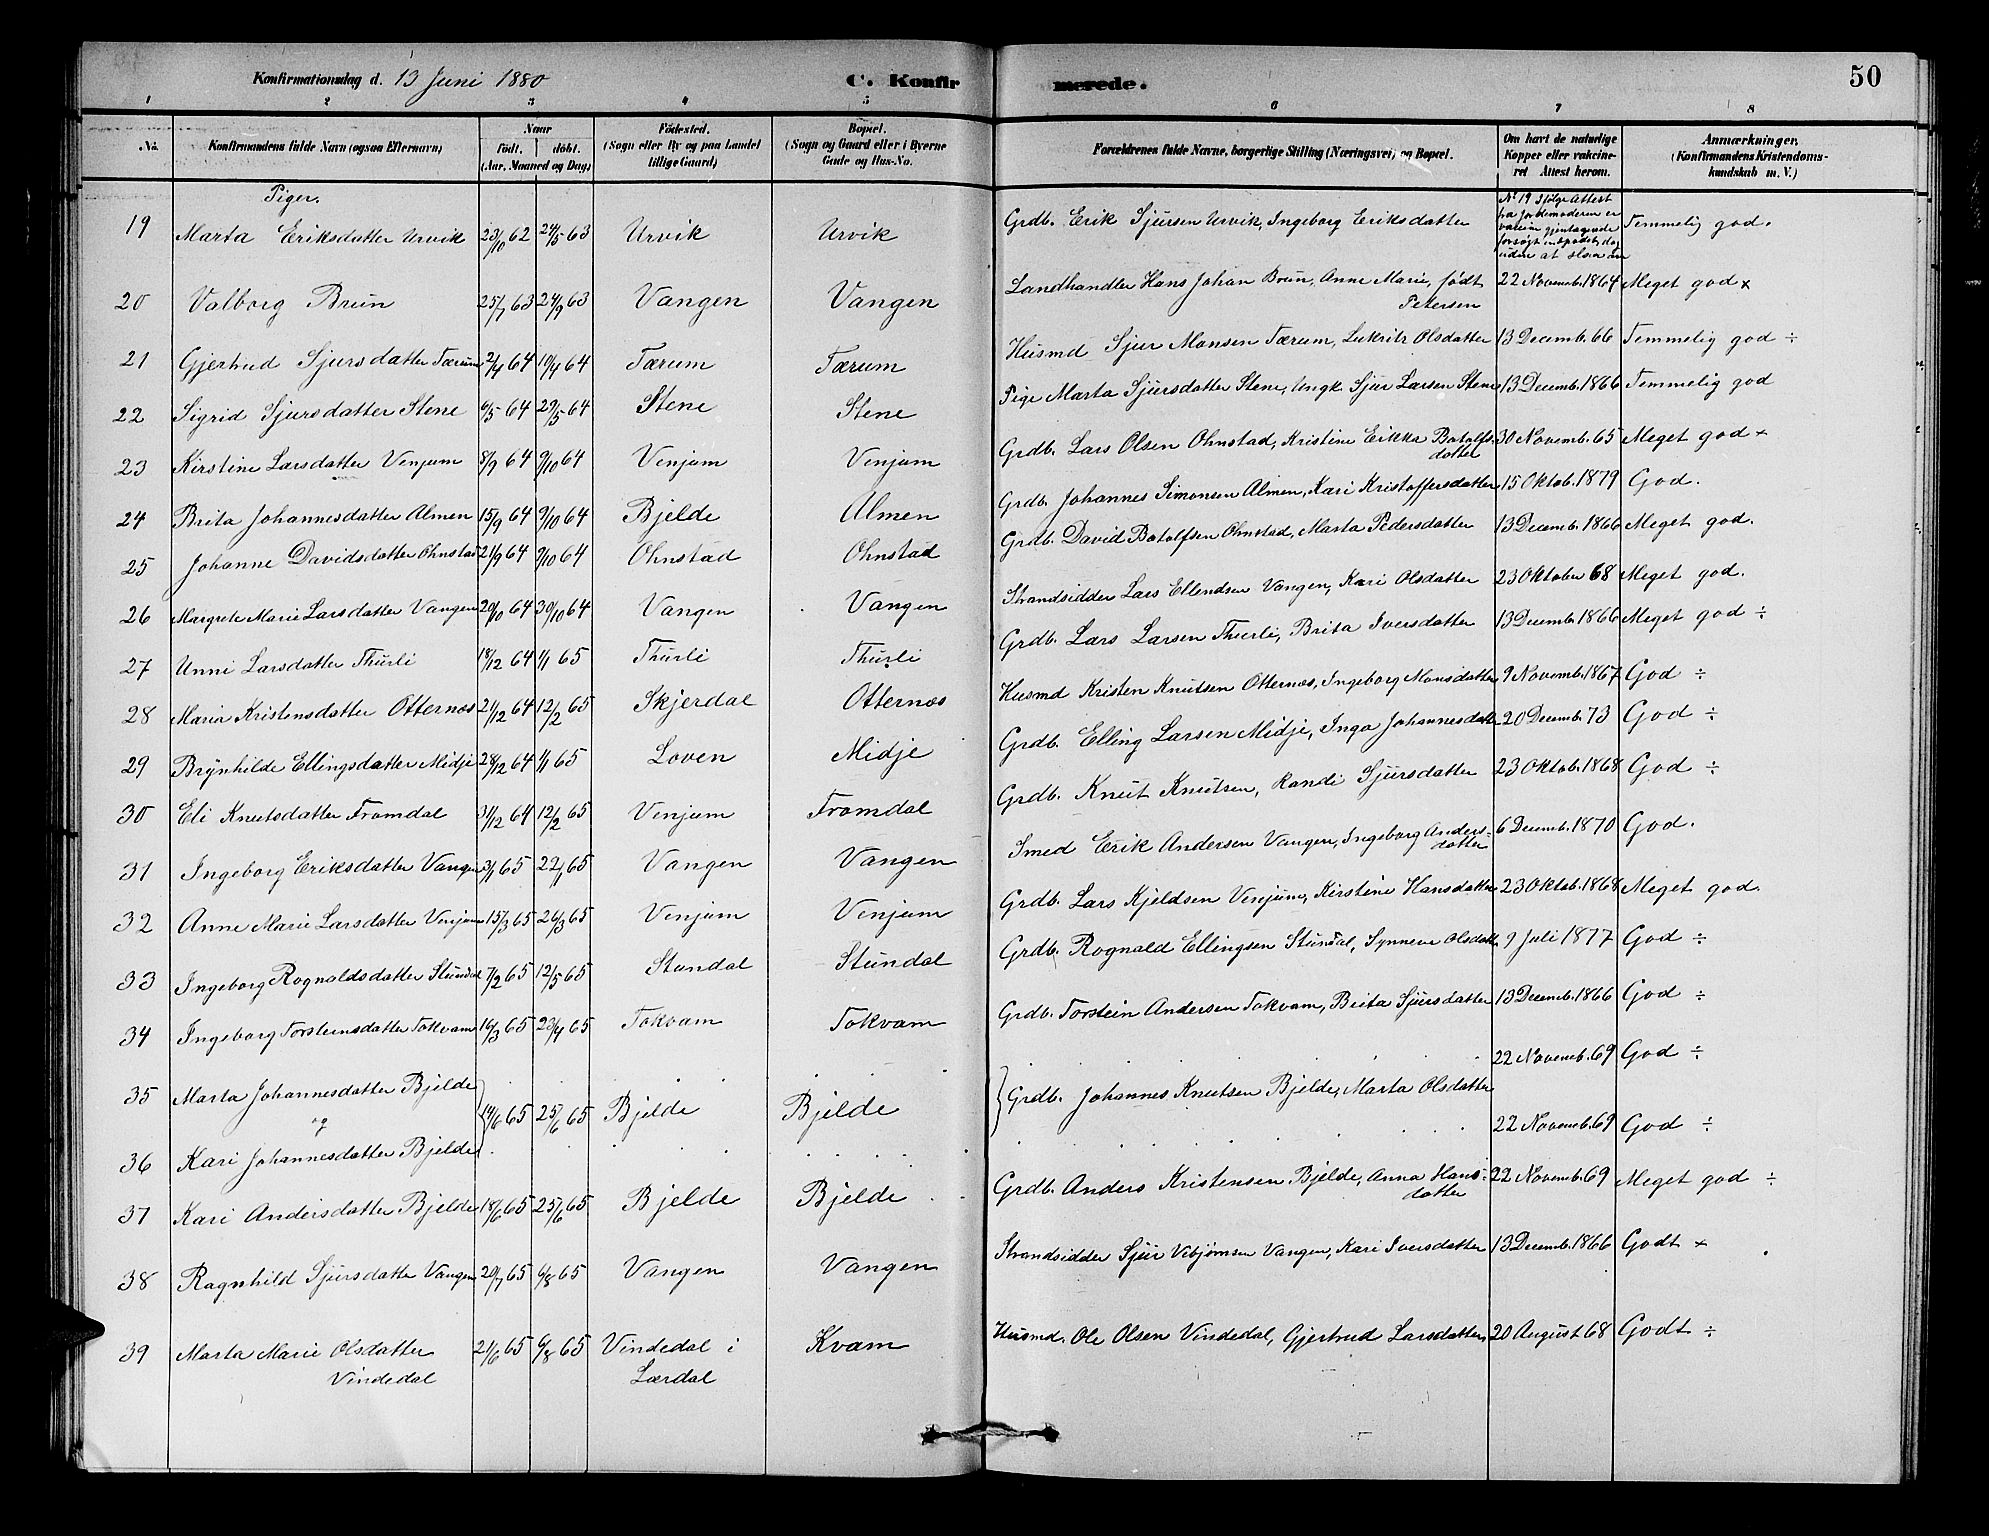 Konfirmationsdag d. 13 Juni 1880 C. Konfirmerede. 50
1 2 3 4 5 6 7 8
No. Konfirmandens fulde Navn (ogsaa Efternavn) Naar født. døbt. (Aar, Maaned og Dag) Fødested. (Sogn eller By og paa Landet tillige Gaard) Bopæl. (Sogn og Gaard eller i Byerne Gade og Hus-No. Forældrenes fulde Navne, borgerlige Stilling (Næringsvei) og Bopæl. Om havt de naturlige Kopper eller vakcineret Attest herom. Anmærkninger. (Konfirmandens Kristendomskundskab m. V.)
Piger.
19 Marta Eriksdatter Urvik 23/10 62 24/5 63 Urvik Urvik Grdb. Erik Sjursen Urvik, Ingeborg Eriksdatter No 19 ifølge Attest fra Jordemoderen er vaccin gjentagende forsøgt indpodet, dog uden at Temmelig god.
20 Valborg Brun 25/7 63 24/9 63 Vangen Vangen Landhandler Hans Johan Brun, Anne Marie, født Petersen 22 Novemb. 1864 Meget god ×
21 Gjertrud Sjursdatter Tærum 2/4 64 10/4 64 Tærum Tærum Husmd Sjur Monsen Tærum, Olsdatter 13 Decemb. 66 Temmelig god ÷
22 Sigrid Sjursdatter Stene 6/5 64 29/5 64 Stene Stene Pige Marta Sjursdatter Stene, Ungk. Sjur Larsen Stene 13 Decemb. 1866 Temmelig god
23 Kirstine Larsdatter Venjum 8/9 64 9/10 64 Venjum Venjum Grdb. Lars Olsen Ohnstad, Kristine Erikka Botolfsdatter 30 Novemb. 65 Meget god ×
24 Brita Johannesdatter Almen 15/9 64 9/10 64 Bjelde Almen Grdb. Johannes Simonsen Almen, Kari Kristoffersdatter 15 Oktob. 1879 God.
25 Johanne Davidsdatter Ohnstad 21/9 64 9/10 64 Ohnstad Ohnstad Grdb. David Botolfsen Ohnstad, Marta Pedersdatter 13 Decemb. 1866 Meget god.
26 Margrete Marie Larsdatter Vangen 20/10 64 30/10 64 Vangen Vangen Strandsidder Lars Ellendsen Vangen, Kari Olsdatter 23 Oktober 68 Meget god.
27 Unni Larsdatter Thurli 18/12 64 1/1 65 Thurli Thurli Grdb. Lars Larsen Thurli, Brita Iversdatter 13 Decemb. 1866 Meget god ÷
28 Maria Kristensdatter Otternæs 21/12 64 12/2 65 Skjerdal Otternæs Husmd Kristen Knutsen Otternæs, Ingeborg Monsdatter 9 Novemb. 1867 God ÷
29 Brynhilde Ellingsdatter Midje 28/12 64 1/1 65 Loven Midje Grdb. Elling Larsen Midje, Inga Johannesdatt 20 Decemb. 73 God ÷
30 Eli Knutsdatter Fromdal 31/12 64 12/2 65 Venjum Fromdal Grdb. Knut Knutsen, Randi Sjursdatter 23 Oktob. 1868 God ÷
31 Ingeborg Eriksdatter Vangen 3/1 65 22/1 65 Vangen Vangen Smed Erik Andersen Vangen, Ingeborg Andersdatter 6 Decemb. 1870 God.
32 Anne Marie Larsdatter Venjum 15/3 65 26/3 65 Venjum Venjum Grdb. Lars Kjeldsen Venjum, Kirstine Hansdatter 23 Oktob. 1868 Meget god.
33 Ingeborg Rognaldsdatter Stundal 7/2 65 12/5 65 Stundal Stundal Grdb. Rognald Ellingsen Stundal, Synneve Olsdatt. 9 Juli 1877 God ÷
34 Ingeborg Torsteinsdatter Tokvam 16/3 65 23/4 65 Tokvam Tokvam Grdb. Torstein Andersen Tokvam, Brita Sjursdatter 13 Decemb. 1866 God ÷
35 Marta Johannesdatter Bjelde 22 Novemb. 69 God ÷
og 14/6 65 25/6 65 Bjelde Bjelde Grdb. Johannes Knutsen Bjelde, Marta Olsdatter
36 Kari Johannesdatter Bjelde 22 Novemb. 69 God ÷
37 Kari Andersdatter Bjelde 18/6 65 25/6 65 Bjelde Bjelde Grdb. Anders Kristensen Bjelde, Anna Hansdatter 22 Novemb. 69 Meget god ÷
38 Ragnhild Sjursdatter Vangen 20/7 65 6/8 65 Vangen Vangen Strandsidder Sjur Vangen, Kari Iversdatter 13 Decemb. 1866 Godt ×
39 Marta Marie Olsdatter Vindedal 21/6 65 6/8 65 Vindedal i Lærdal Kvam Husmd. Ole Olsen Vindedal, Gjertrud Larsdatter 20 August 68 Godt ÷